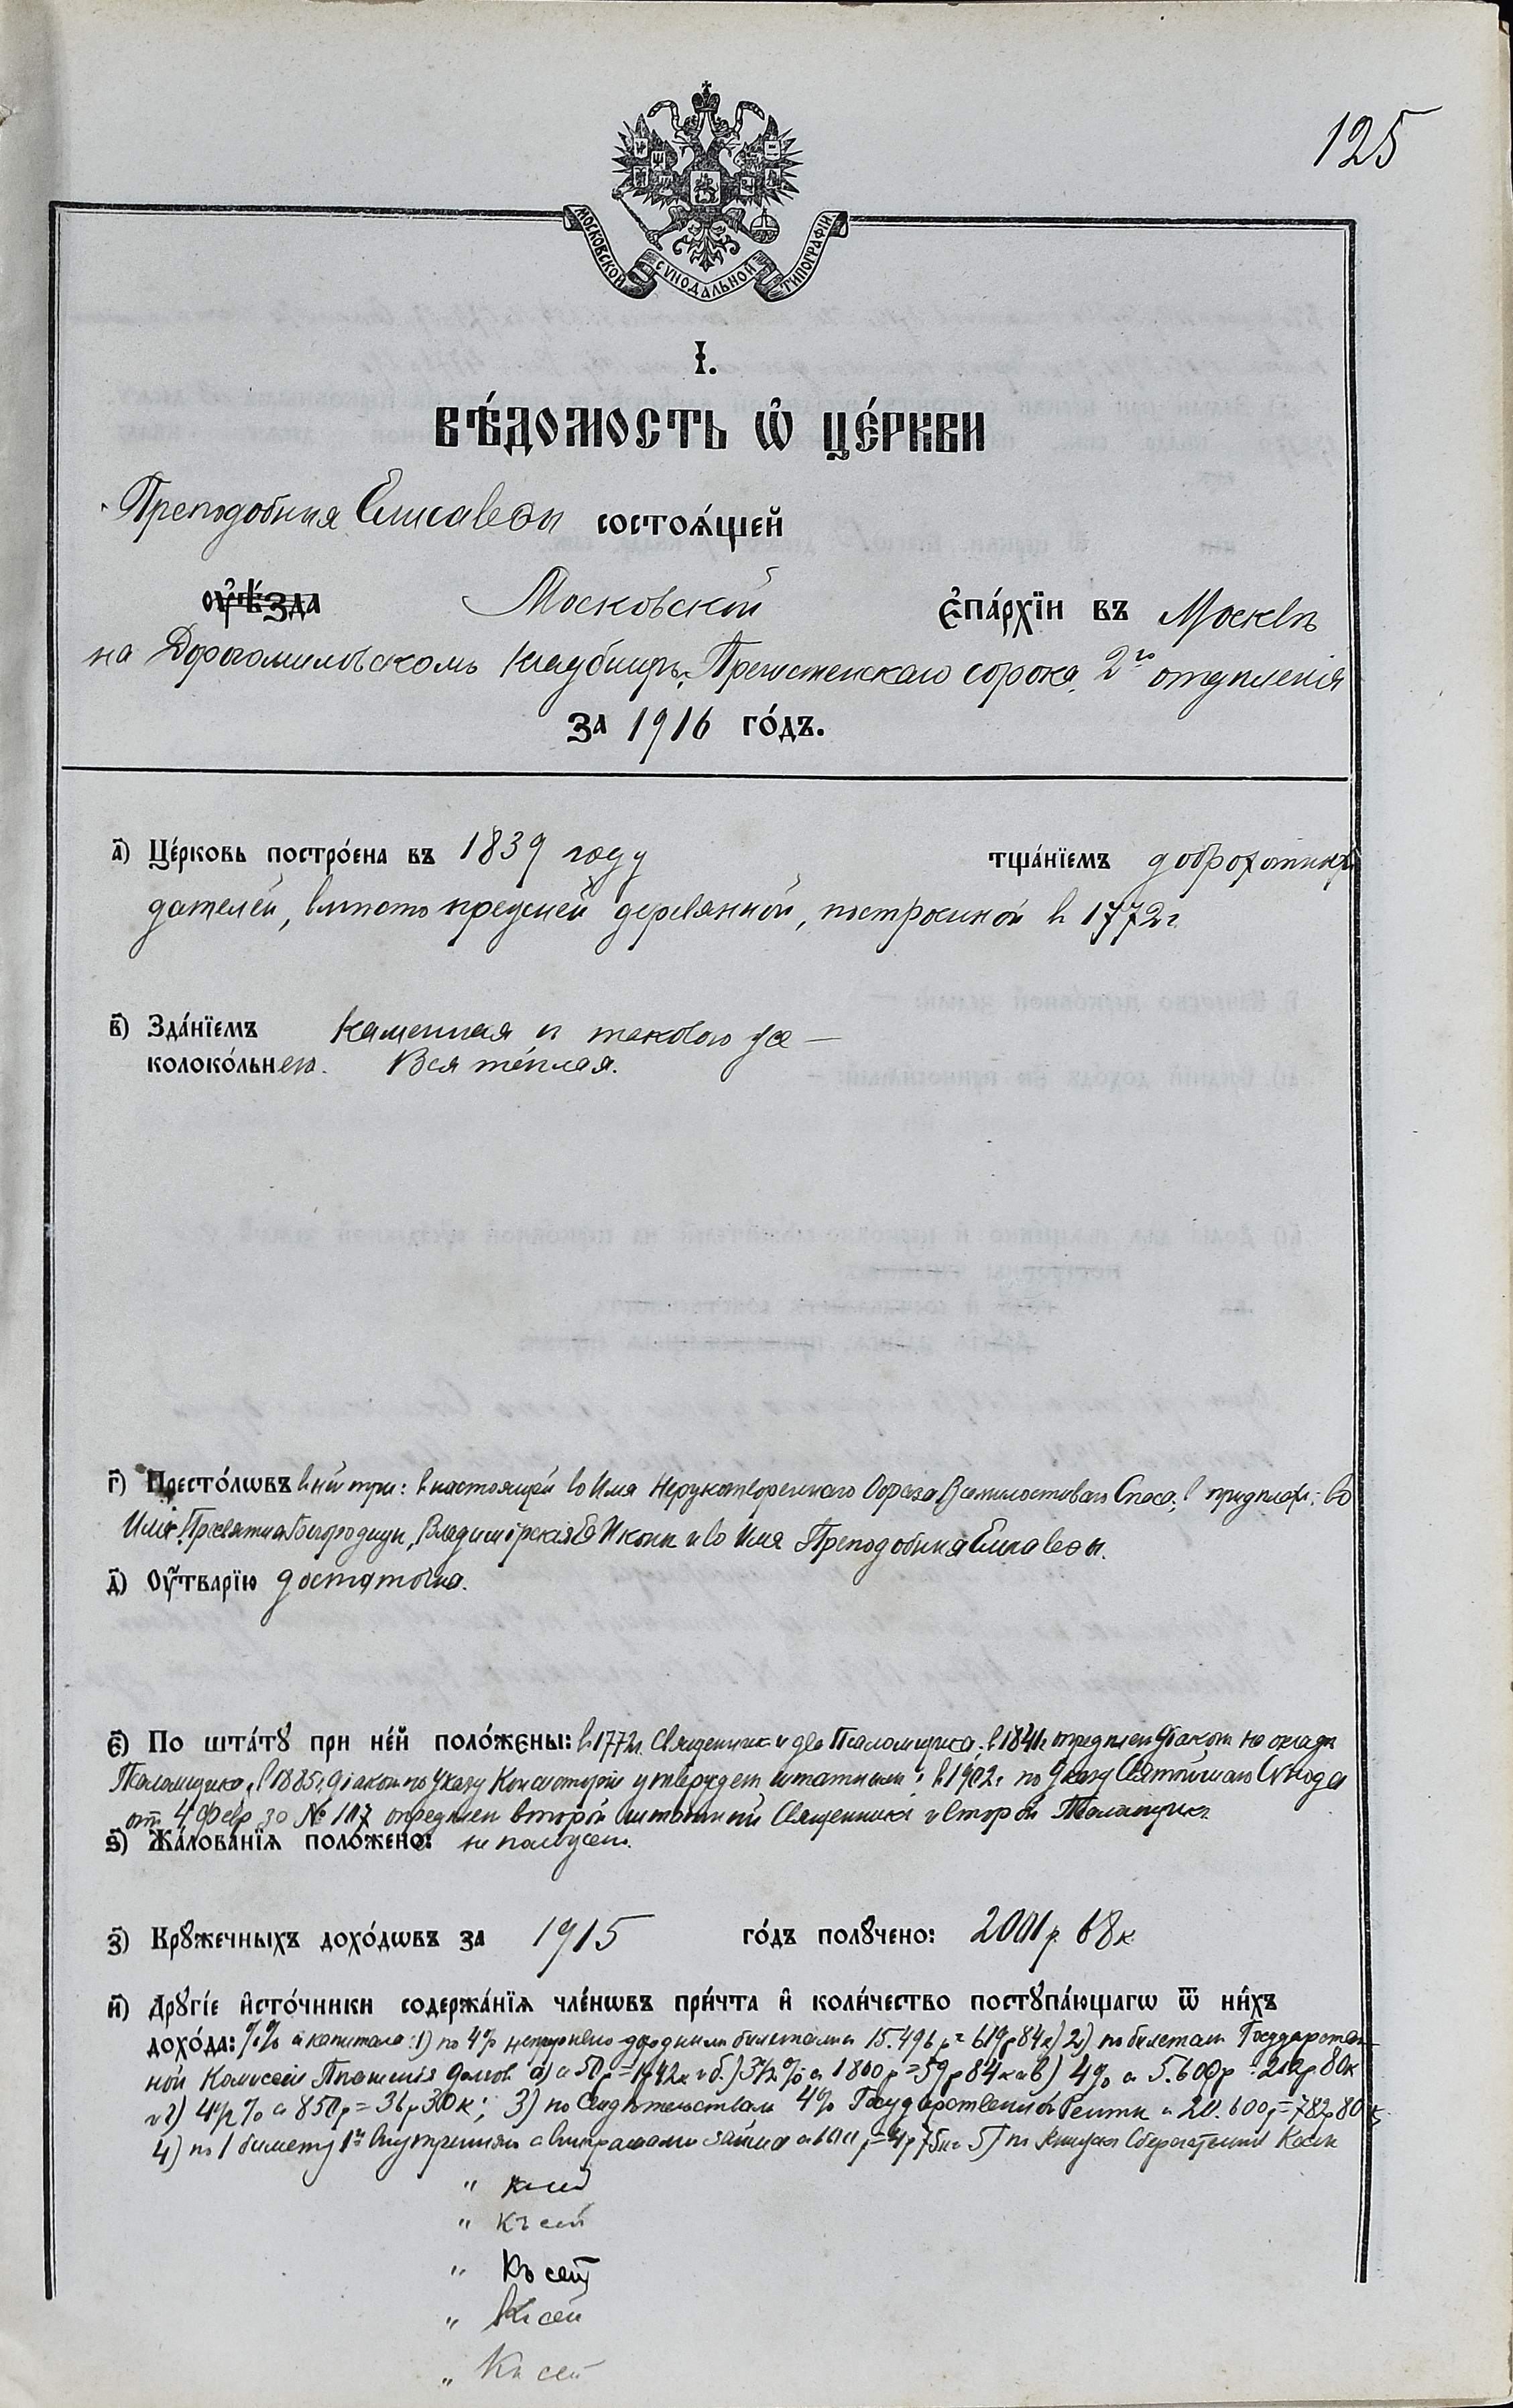 125
МОСКОВСКОЙ СУНОДАЛЬНОЙ ТИПОГРАФІИ.
І.
ВѢ́ДОМОСТЬ Ѡ҆ ЦЕ́РКВИ
Преподобныя Елисаветы состоѧ́щей
оу҆ѣ́зда Московской є҆па́рхїи въ Москвѣ
на Дорогомиловскомъ кладбищѣ, Пречистенскаго сорока, 2го отдѣленія
за 1916 го́дъ.
а҃) Це́рковь постро́ена въ 1839 году тща́нїемъ доброхотныхъ
дателей, вмѣсто прежней деревянной, построенной в 1772 г.
в҃) Зда́нїемъ Каменная съ таковою же —
колоко́льнею. Вся тёплая.
г҃) Престо́лѡвъ в ней три: в настоящей во Имя Нерукотвореннаго Образа Всемилостиваго Спаса, в придѣлах: во
Имя Пресвятыя Богородицы, Владимірскія Ея Иконы и во Имя Преподобныя Елисаветы.
д҃) Оу҆́тварїю достаточна.
є҃) По шта́тꙋ при не́й поло́жены: в 1772 г. Священник и два Псаломщика, в 1841 г. опредѣлен Діакон на окладѣ
Псаломщика, в 1885 г. Діакон по Указу Консисторіи утвержден штатным и в 1902 г. по Указу Святѣйшаго Сѵнода
от 4 февр за № 117 опредѣлен второй штатный Священник и второй Псаломщик.
ѕ҃) Жа́лованїѧ поло́жено: не получает.
з҃) Крꙋ́жечныхъ дохо́дѡвъ за 1915 го́дъ полꙋ́чено: 2001 р. 68 к
и҃) Дрꙋгі́е и҆сто́чники содержа́нїѧ чле́нѡвъ при́чта и҆ коли́чество постꙋпа́ющагѡ ѿ ни́хъ
дохо́да: %% с капитала: 1) по 4% непрерывно-доходным билетам с 15.496 р = 619 р 84 к) 2) по билетам Государствен-
ной Комиссіи Погашенія долгов а) с 50 р = 1 р 42 к и б) 3½% с 1800 р = 59 р 84 к и в) 4% с 5.600 р = 212 р 80 к
и г) 4½% с 850 р = 36 р 30 к; 3) по Свидѣтельствам 4% Государственной Ренты с 20.600 р = 782 р 80 к
4) по 1 билету 1го Внутренняго с выиграшами займа с 100 р = 4 р 75 к и 5) по книжкѣ Сберегательной Кассы
" къ сей
" къ сей
" Къ сей
" Къ сей
" Къ сей